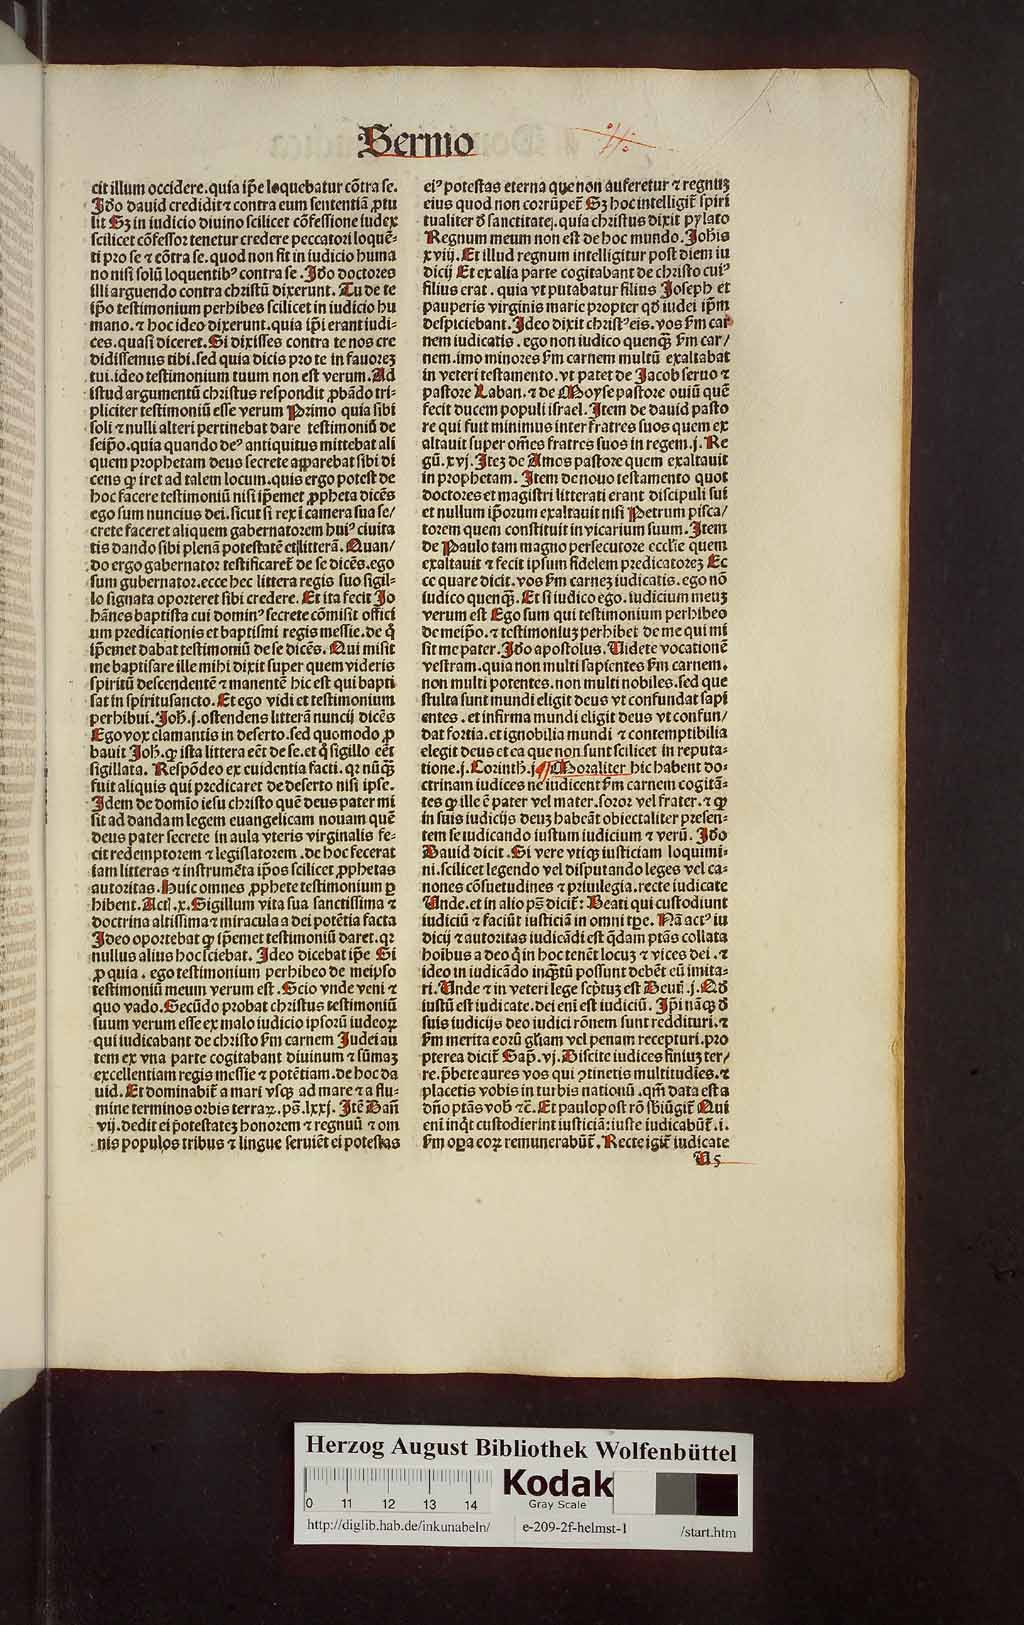 Sermo
cit illum occidere. quia ip̄e loquebatur cōtra se.
Iđo dauid credidit ⁊ contra eum sententiā ꝓtu
lit Sꝫ in iudicio diuino scilicet cōfessione iudex
scilicet cōfessor tenetur credere peccatori loquē-
ti pro se ⁊ cōtra se. quod non fit in iudicio huma
no nisi solū loquentibꝰ contra se. Iđo doctores
illi arguendo contra christū dixerunt. Tu de te
ip̄o testimonium perhibes scilicet in iudicio hu
mano. ⁊ hoc ideo dixerunt. quia ip̄i erant iudi-
ces. quasi diceret. Si dixisses contra te nos cre
didissemus tibi. sed quia dicis pro te in fauorez
tui. ideo testimonium tuum non est verum. Ad
istud argumentū christus respondit ꝓbādo tri-
pliciter testimoniū esse verum Primo quia sibi
soli ⁊ nulli alteri pertinebat dare testimoniū de
seip̄o. quia quando deꝰ antiquitus mittebat ali
quem prophetam deus secrete apparebat sibi di
cens ꝙ iret ad talem locum. quis ergo potest de
hoc facere testimoniū nisi ip̄emet ꝓpheta dicēs
ego sum nuncius dei. sicut si rex i camera sua se/
crete faceret aliquem gabernatorem huiꝰ ciuita
tis dando sibi plenā potestatē et litterā. Quan/
do ergo gabernator testificaret̄ de se dicēs. ego
sum gubernator. ecce hec littera regis suo sigil-
lo signata oporteret sibi credere. Et ita fecit Jo
hānes baptista cui dominꝰ secrete cōmisit offici
um predicationis et baptismi regis messie. de q̊
ip̄emet dabat testimoniū de se dicēs. Qui misit
me baptisare ille mihi dixit super quem videris
spiritū descendentē ⁊ manentē hic est qui bapti
sat in spiritusancto. Et ego vidi et testimonium
perhibui. Joh̄. j. ostendens litterā nuncij dicēs
Ego vox clamantis in deserto. sed quomodo ꝓ
bauit Joh̄. ꝙ ista littera eēt de se. et q̊ sigillo eēt
sigillata. Respōdeo ex euidentia facti. qꝛ nūqꝫ
fuit aliquis qui predicaret de deserto nisi ipse.
Idem de domīo iesu christo quē deus pater mi
sit ad dandam legem euangelicam nouam quē
deus pater secrete in aula vteris virginalis fe-
cit redemptorem ⁊ legislatorem. de hoc fecerat
iam litteras ⁊ instrumēta ip̄os scilicet ꝓphetas
autoritas. Huic omnes ꝓphete testimonium ꝑ
hibent. Act̄. x. Sigillum vita sua sanctissima ⁊
doctrina altissima ⁊ miracula a dei potētia facta
Ideo oportebat ꝙ ip̄emet testimoniū daret. qꝛ
nullus alius hoc sciebat. Ideo dicebat ip̄e Si
ꝓ quia. ego testimonium perhibeo de meipso
testimoniū meum verum est. Scio vnde veni ⁊
quo vado. Secūdo probat christus testimoniū
suum verum esse ex malo iudicio ipsorū iudeoꝝ
qui iudicabant de christo ẜm carnem Judei au
tem ex vna parte cogitabant diuinum ⁊ sūmaꝫ
excellentiam regis messie ⁊ potētiam. de hoc da
uid. Et dominabit̄ a mari vsqꝫ ad mare ⁊ a flu-
mine terminos orbis terraꝝ. ps̄. lxxj. Itē Dan̄
vij. dedit ei p̄otestatez honorem ⁊ regnuū ⁊ om
nis populos tribus ⁊ lingue seruiēt ei potestas
eiꝰ potestas eterna que non auferetur ⁊ regnuꝫ
eius quod non corrūpet̄ Sꝫ hoc intelligit̄ spiri
tualiter đ sanctitatej. quia christus dixit pylato
Regnum meum non est de hoc mundo. Joh̄is
xviij. Et illud regnum intelligitur post diem iu
dicij Et ex alia parte cogitabant de christo cuiꝰ
filius erat. quia vt putabatur filius Joseph et
pauperis virginis marie propter qđ iudei ip̄m
despiciebant. Ideo dixit christꝰ eis. vos ẜm car
nem iudicatis. ego non iudico quenqꝫ ẜm car/
nem. imo minores ẜm carnem multū exaltabat
in veteri testamento. vt patet de Jacob seruo ⁊
pastore Laban. ⁊ de Moyse pastore ouiū quē
fecit ducem populi israel. Item de dauid pasto
re qui fuit minimus inter fratres suos quem ex
altauit super om̄es fratres suos in regem. j. Re
gū. xvj. Itez de Amos pastore quem exaltauit
in prophetam. Item de nouo testamento quot
doctores et magistri litterati erant discipuli sui
et nullum ip̄orum exaltauit nisi Petrum pisca/
torem quem constituit in vicarium suum. Item
de Paulo tam magno persecutore eccl̄ie quem
exaltauit ⁊ fecit ipsum fidelem predicatorez Ec
ce quare dicit. vos ẜm carnez iudicatis. ego nō
iudico quenqꝫ. Et si iudico ego. iudicium meuꝫ
verum est Ego sum qui testimonium perhibeo
de meip̄o. ⁊ testimoniuꝫ perhibet de me qui mi
sit me pater. Iđo apostolus. Videte vocationē
vestram. quia non multi sapientes ẜm carnem.
non multi potentes. non multi nobiles. sed que
stulta sunt mundi eligit deus vt confundat sapi
entes. et infirma mundi eligit deus vt confun/
dat fortia. et ignobilia mundi ⁊ contemptibilia
elegit deus et ea que non sunt scilicet in reputa-
tione. j. Corinth. j. ¶ Moraliter hic habent do-
ctrinam iudices ne iudicent ẜm carnem cogitā-
tes ꝙ ille ē pater vel mater. soror vel frater. ⁊ ꝙ
in suis iudicijs deuꝫ habeāt obiectaliter presen-
tem se iudicando iustum iudicium ⁊ verū. Iđo
Dauid dicit. Si vere vtiqꝫ iusticiam loquimi-
ni. scilicet legendo vel disputando leges vel ca-
nones cōsuetudines ⁊ priuilegia. recte iudicate
Unde. et in alio ps̄ dicit̄: Beati qui custodiunt
iudiciū ⁊ faciūt iusticiā in omni tꝑe. Nā actꝰ iu
dicij ⁊ autoritas iudicādi est q̄dam ptās collata
hoibus a deo q̊ in hoc tenēt locuꝫ ⁊ vices dei. ⁊
ideo in iudicādo inqꝫtū possunt debēt eū imita-
ri. Unde ⁊ in veteri lege scp̄tuꝫ est Deut̄. j. Qđ
iustū est iudicate. dei eni est iudiciū. Ip̄i nāqꝫ đ
suis iudicijs deo iudici rōnem sunt reddituri. ⁊
ẜm merita eorū gl̄iam vel penam recepturi. pro
pterea dicit̄ Sap̄. vj. Discite iudices finiuꝫ ter/
re. p̄bete aures vos qui ꝯtinetis multitudīes. ⁊
placetis vobis in turbis nationū. qm̄ data est a
dn̄o ptās vob̄ ⁊c̄. Et paulopost rō sb̄iūgit̄ Qui
eni inq̇t custodierint iusticiā: iuste iudicabūt̄. i.
ẜm oꝑa eoꝝ remunerabūt̄. Recte igit̄ iudicate
U 5
Herzog August Bibliothek Wolfenbüttel
0 11 12 13 14
Kodak
Gray Scale
http://diglib.hab.de/inkunabeln/ e-209-2f-helmst-1 /start.htm